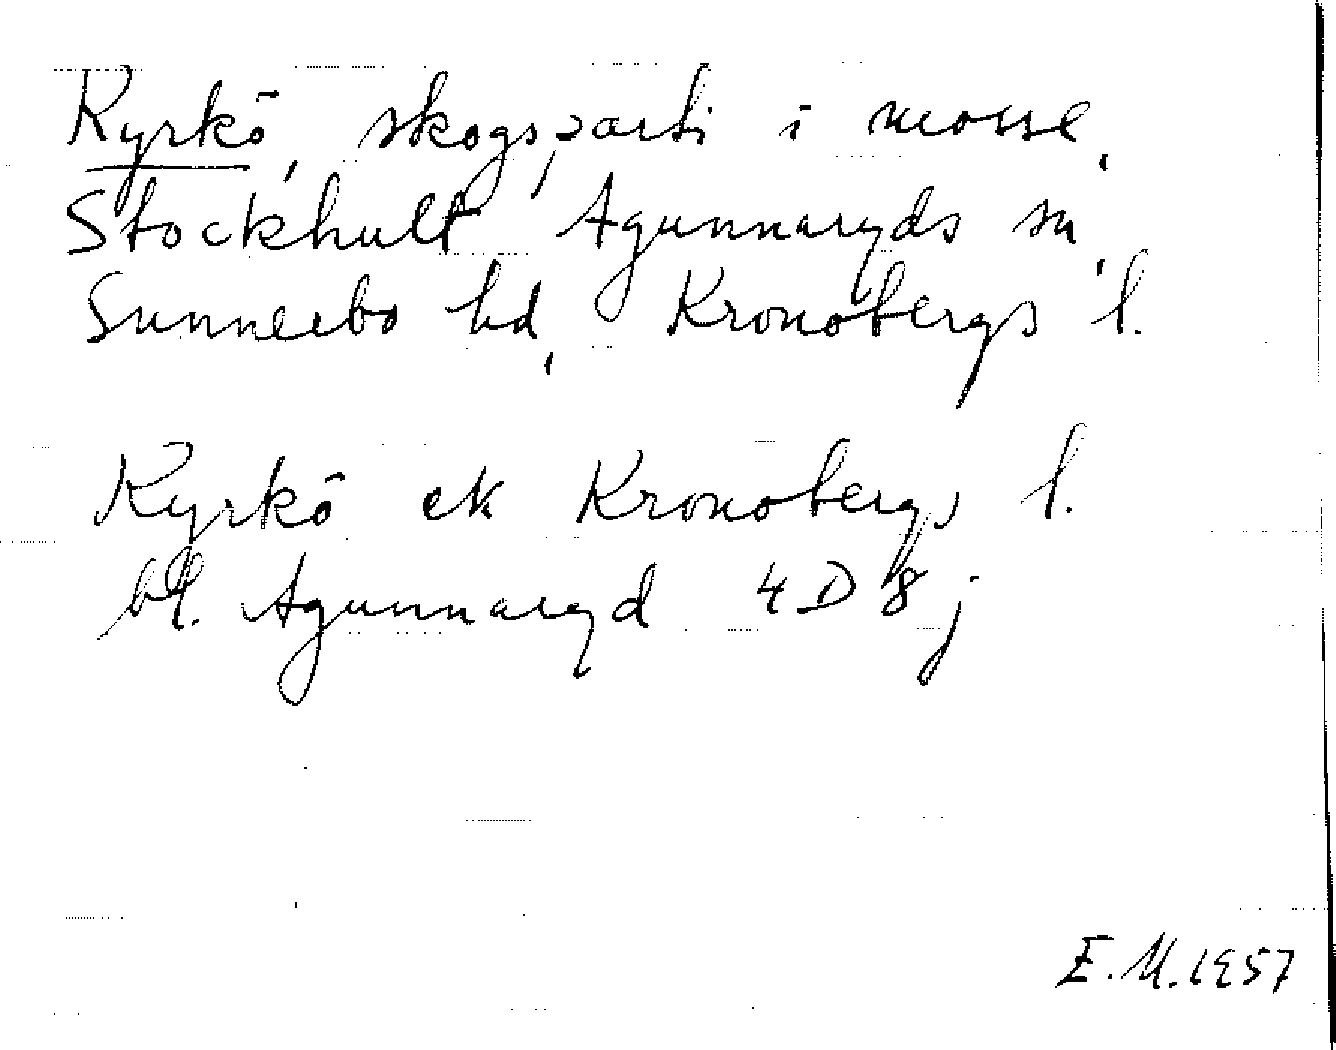 Kyrkö, skogsparti i mosse,
Stockhult Agunnaryds sn,
Sunnerbo hd, Kronobergs l.
Kyrkö ek Kronobergs l.
bl. Agunnaryd 4D8j
E.M. 1957